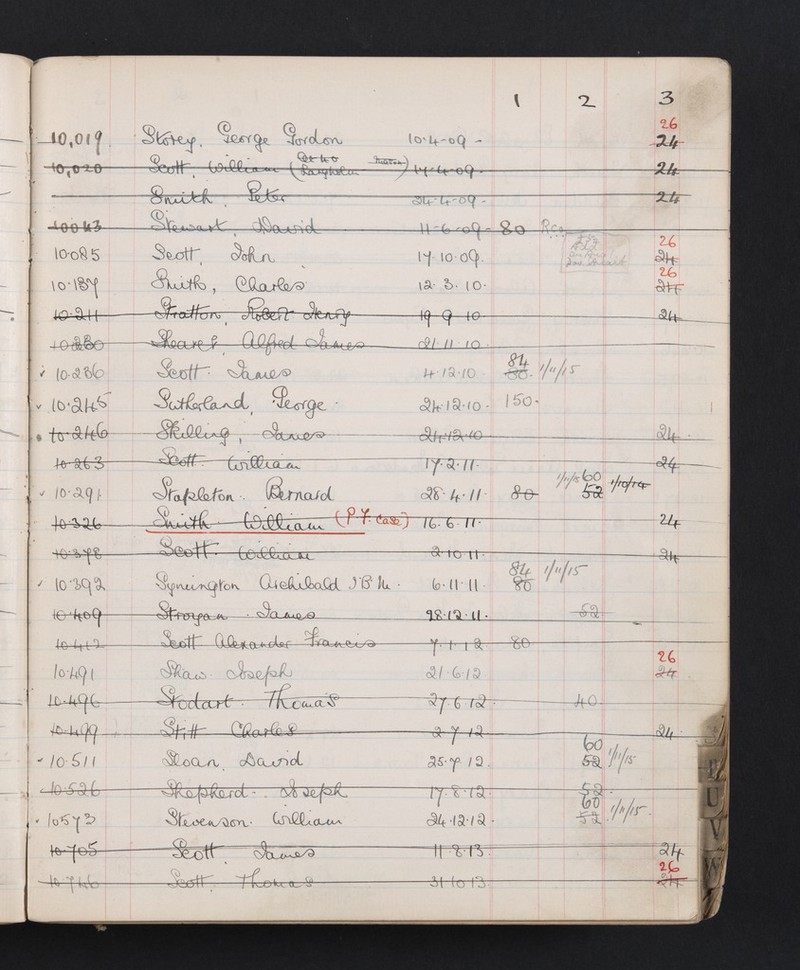 1 2 3
26
10,019 Storey, George Gordon 10·4-09 - 24
10,020 Scott, William ( ) 14-4-09 - 24
Smith, Peter 24·4-09 - 24
10043 Stewart, David 11-6-09 - 80
26
10·085 Scott, John 17·10·09. 24
26
10·187 Smith, Charles 12·3·10· 24
10·211 Stratton, Robert Henry 19 9 10 24
10280 Shearer, Alfred James 21·11·10
84
10·236 Scott· James 4·12·10· 80· 1/11/15
10·245 Sutherland, George · 24·12·10· 150·
10·246 Skilling, James 24·12·10 24·
10·263 Scott· William 17·2·11· 24
1/11/15 60
10·291 Stapleton· Bernard 28·4·11· 80 52 1/10/14
10·326 Smith· William (P.F. Case) 16·6·11· 24
10·378 Scott· William 2·10·11· 24
84 1/11/15
10·392 Symington Archibald J.B.M. · 6·11·11· 80
10·409 Stroyan· James 28·12·11· 52
10·412 Scott Alexander Francis 7·1·12 80
26
10·491 Shaw· Joseph 21·6·12 24
10·496 Stodart· Thomas 27·6·12· 40
10·499 Stitt Charles 2·7·12 24·
60
10·511 Sloan, David 25·7·12. 52 1/11/15
10·526 Shepherd- Joseph 17·8·12 52·
60
10573 Stevenson· William 24·12·12· 52 1/11/15·
10·705 Scott, James 11·8·13· 24
26
10·746 Scott, Thomas 31·10·13· 24
U
V
W